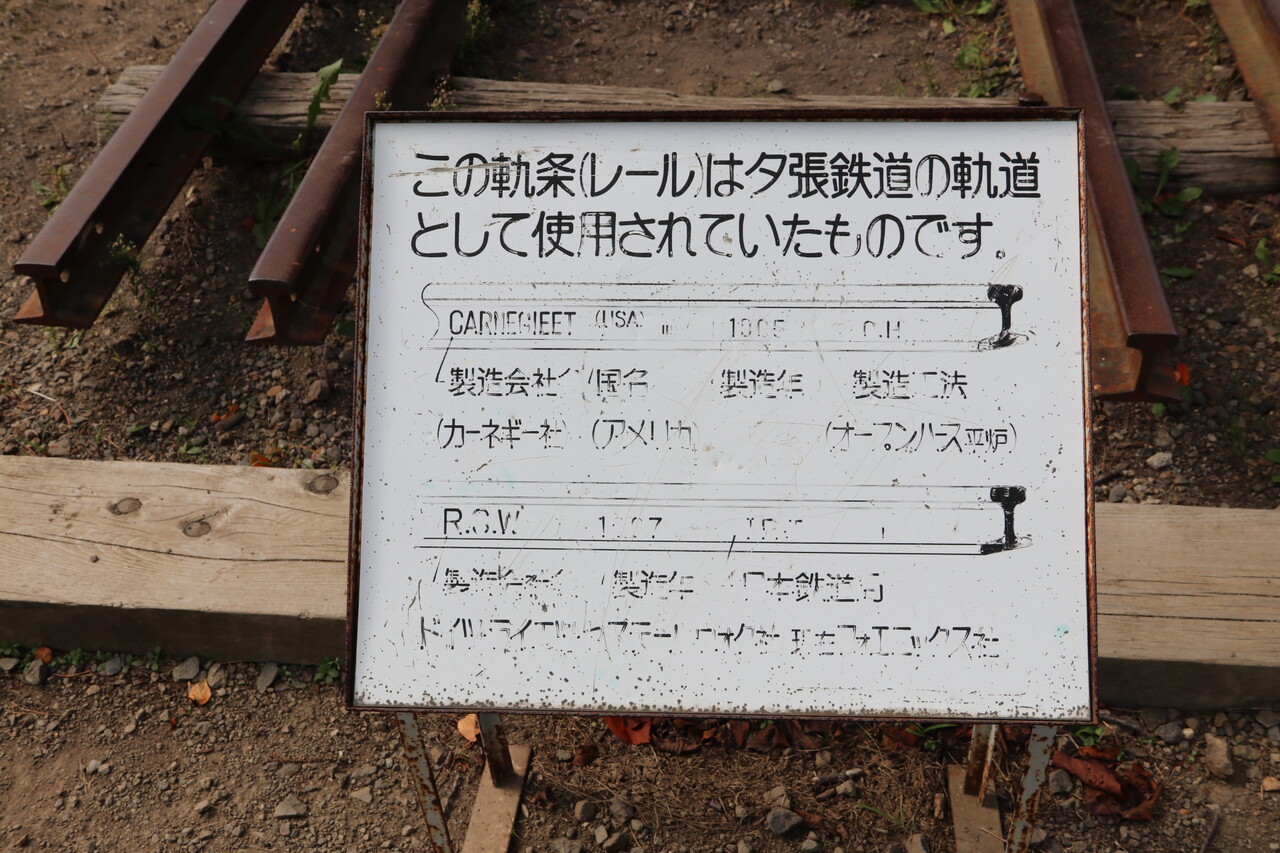 この軌条(レール)は夕張鉄道の軌道
として使用されていたものです。
CARNEGIEET (USA) O.H
製造会社 国名 製造年 製造工法
(カーネギー社) (アメリカ) (オープンハース平炉)
R.S.W
製造会社 製造年 日本鉄道
現在フォエニックス社